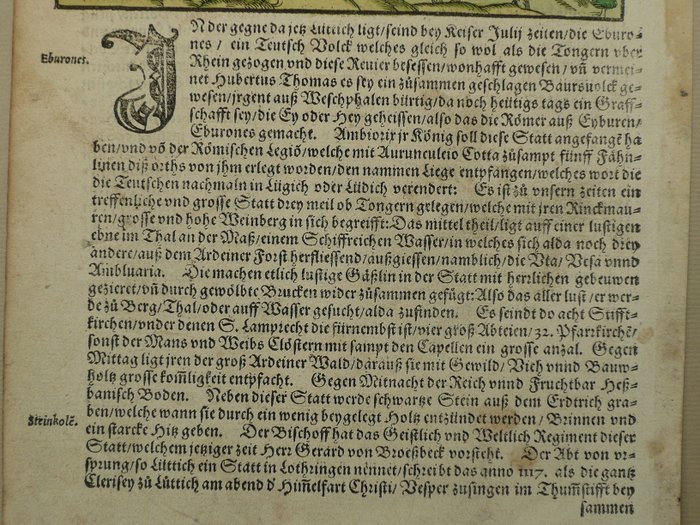 IN der gegne da jetz Lüttich ligt/seind bey Keiser Julij zeiten/die Eburo-
nes / ein Teutsch Volck welches gleich so wol als die Tongern vber
Eburones.
Rhein gezogen vnd diese Reuier besessen/wonhafft gewesen/ vñ vermei-
net Hubertus Thomas es sey ein zůsammen geschlagen Baursuolck ge-
wesen/jrgent auß Weschphalen bürtig/da noch heütigs tags ein Graff-
schafft sey/die Ey oder Hey geheissen/also das die Römer auß Eyburen/
Eburones gemacht. Ambiorix jr König soll diese Statt angefangē ha
ben/vnd võ der Römischen Legiõ/welche mit Aurunculeio Cotta zůsampt fünff Fähn-
linen diß orths von jhm erlegt worden/den nammen Liege entpfangen/welches wort die
die Teutschen nachmaln in Lügich oder Lüdich verendert: Es ist zů vnsern zeiten ein
treffenliche vnd grosse Statt drey meil ob Tongern gelegen/welche mit jren Rinckmau-
ren/grosse vnd hohe Weinberg in sich begreifft: Das mittel theil/ligt auff einer lustigen
ebne im Thal an der Maß/einem Schiffreichen Wasser/in welches sich alda noch drey
andere/auß dem Ardeiner Forst herfliessend/außgiessen/namblich/die Vta/ Vesa vnnd
Ambluaria. Die machen etlich lustige Gäßlin in der Statt mit herrlichen gebeuwen
gezieret/vñ durch gewölbte Brucken wider zůsammen gefügt: Also das aller lust/er wer-
de zů Berg/Thal/oder auff Wasser gesucht/alda zufinden. Es seindt do acht Stifft-
kirchen/vnder denen S. Lamprecht die fürnembst ist/vier groß Abteien/ 32. Pfarrkirchē/
sonst der Mans vnd Weibs Clöstern mit sampt den Capellen ein grosse anzal. Gegen
Mittag ligt jren der groß Ardeiner Wald/darauß sie mit Gewild/ Vich vnnd Bauw-
holtz grosse kom̃ligkeit entpfacht. Gegen Mitnacht der Reich vnnd Fruchtbar Heß-
banisch Boden. Neben dieser Statt werde schwartze Stein auß dem Erdtrich gra-
Steinkolē.
ben/welche wann sie durch ein wenig beygelegt Holtz entzündet werden/ Brinnen vnd
ein starcke Hitz geben. Der Bischoff hat das Geistlich vnd Weltlich Regiment dieser
Statt/welchem jetziger zeit Herr Gerard von Groeßbeck vorsicht. Der Abt von vr-
sprung/so Lütttich ein Statt in Lothringen nennet/schreibt das anno 1117. als die gantz
Clerisey zů Lüttich am abend d' Him̃elfart Christi/ Vesper zusingen im Thům̃stifft bey
sammen